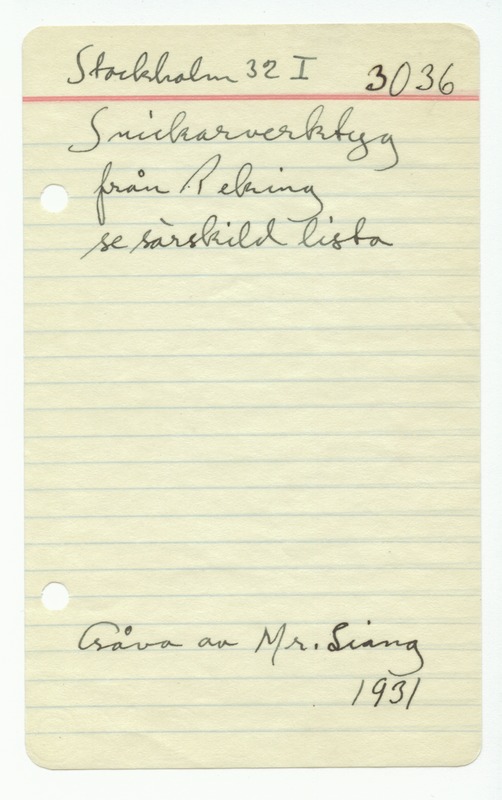 Stockholm 32 I 3036
Snickarverktyg
från Peking
se särskild lista
Gåva av Mr. Liang
1931